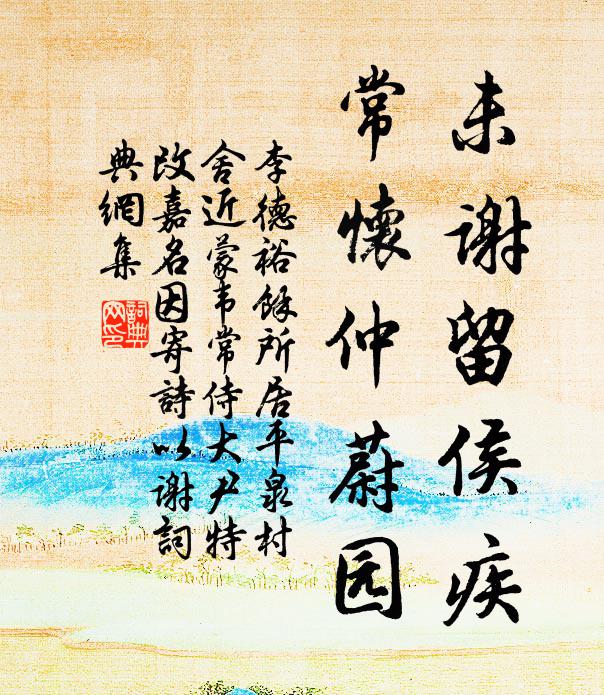 未谢留侯疾
常懷仲蔚园
李德裕餘所居平泉村
舍近蒙韦常侍大尹特
改嘉名因寄詩以谢詞
典網集
詞典
网印